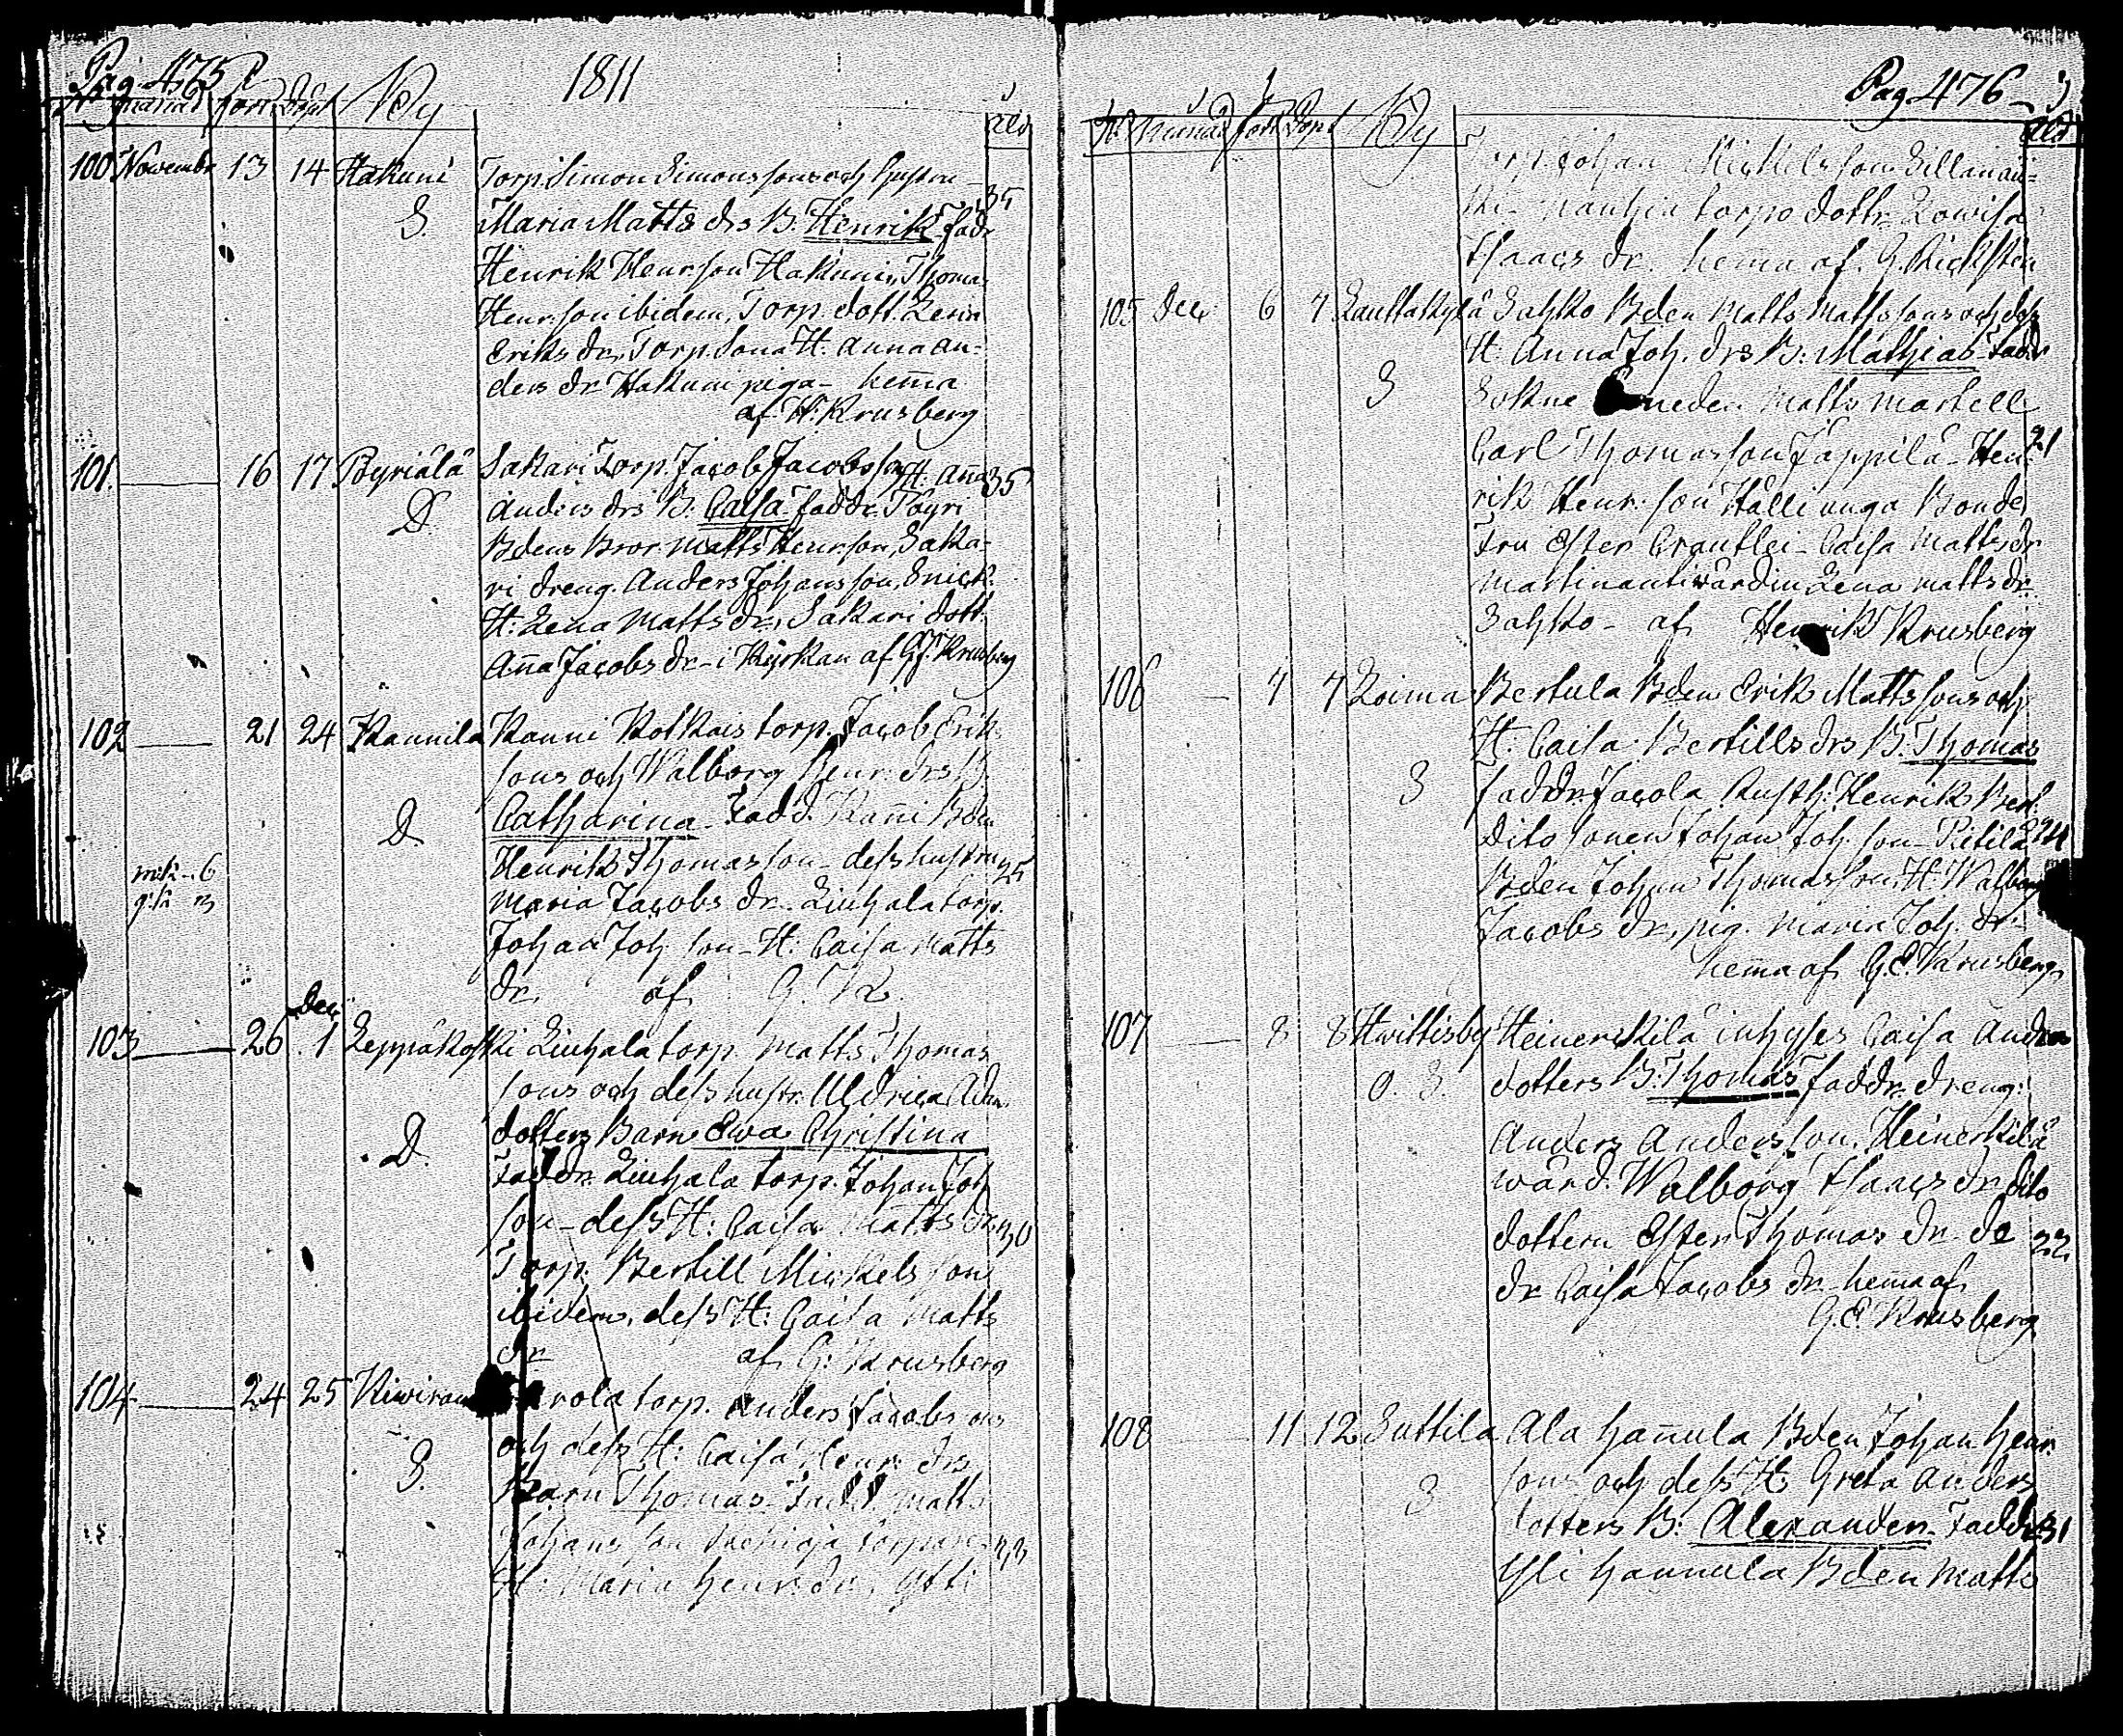 Pag. 475
1811
No månad född döpt By ald
100 Novembr 13 14 Hakuni Torp. Simon Simonssons och hustru
S. Maria Matts drs B. Henrik Fadr 35
Henrik Henr.son Hakuni, Thomas
Henr.son ibidem, Torp. dott.
Eriks dr, Torp. Sona H. Anna An-
ders dr Hakuni piga - hem̄a
af H. Krusberg
101. 16 17 Pyriälä Sakari Torp. Jacob Jacobsson H. An̄a 35
D. Anders drs B: Caisa faddr. Pöyri
Bdens Bror Matts Henr.son, Saka-
ri dreng. Anders Johansson, Enick.
H: Lena Matts dr, Sakari dott.
An̄a Jacobs dr - i Kyrkan af Krusberg
102 21 24 Kannila Kanni Kotkais torp. Jacob Erik
sons och Walborg Henr. drs B.
D. Catharina Fadd. Kan̄i Bden
Henrik Thomasson - dess hustru 25
Maria Jacobs dr. Liuhala torp.
Johan Joh. son - H: Caisa Matts
dr. af G. K.
Dec
103 26 1 Leppäkoski Liuhala torp. Matts Thomas
sons och dess hustr. Uldrica Adm.
dotters Barn Ewa Christina
D. Faddr. Liuhala torp. Johan Joh
son - dess H: Caisa Matts dr 30
Torp. Bertill Mickels son
ibidem, dess H: Caisa Matts
dr af G: Krusberg
104 24 25 torp. Anders Jacobs sons
och dess H: Caisa Henr. drs
S. Barn Thomas Fadd Matts
Johansson torpare 33
H: Maria Henrs dr,
Pag. 476
No månad född döpt By ald
Torp. Johan Mickelsson
torpo dottr Lowisa
Isaacs dr. hem̄a af. G. Ricksten
105 Dec 6 7 Lauttakylä Sahko Bden Matts Mattssons och dess
H: Anna Joh. drs B: Mathias Fadd
S Matts Martell
Carl Thomasson Jäppilä - Hen- 21
rik Henr. son Hälli unga Bonde
Fru Ester Crantlei - Caisa Matts dr
värdin Lena Matts dr
Sahko - af Henrik Krusberg
106 7 7 Loima Bertula Bden Erik Mattssons och
H: Caisa Bertills drs B. Thomas
S faddr. Jacola Rusth: Henrik Bert.
Dito sonen Johan Joh. son - Pietilä 24
Bden Johan Thomasson H: Walborg
Jacobs dr, pig. Maria Joh. dr -
hem̄a af G. E. Krusberg
107 8 8 Hwittisby Heinerskilä inhyses Caisa Anders
O. S. dotters B. Thomas faddr. dreng.
Anders Andersson. Heinerkilä
wärd. Walborg Isaacs dr dito
dottern Ester Thomas dr - de 22
dr Caisa Jacobs dr hem̄a af
G. E. Krusberg
108 11 12 Suttila Ala Han̄ula Bden Johan Henr.
sons och dess H: Greta Anders
S dotters B: Alexander Faddr 31
Yli Hannula Bden Matts